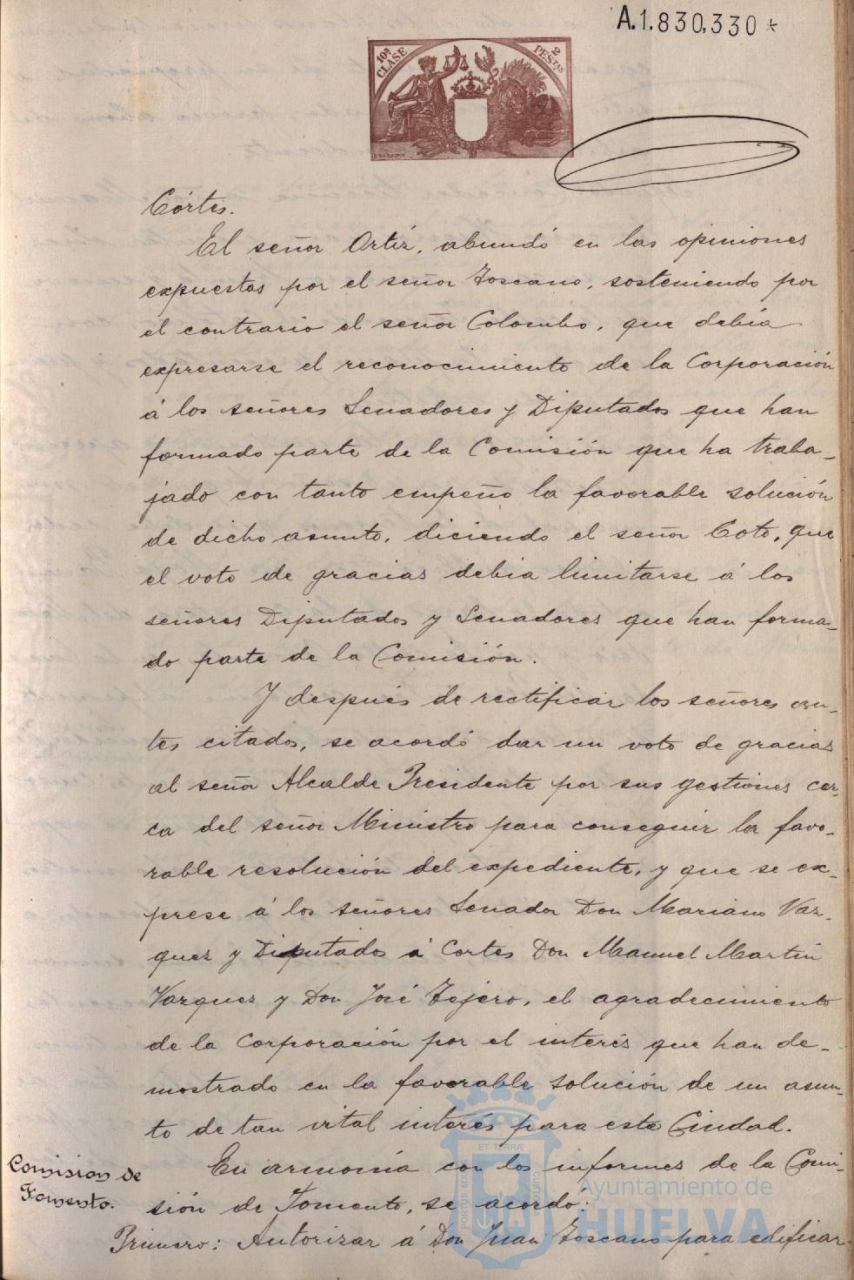 A.1.830,330 *
10ª CLASE
2 PESTAS
Córtes.
El señor Ortíz, abundó en las opiniones
expuestas por el señor Toscano, sosteniendo por
el contrario el señor Colombo, que debía
expresarse el reconocimiento de la Corporación
á los señores Senadores y Diputados que han
formado parte de la Comisión que ha traba-
jado con tanto empeño la favorable solución
de dicho asunto, diciendo el señor Coto, que
el voto de gracias debia limitarse á los
señores Diputados y Senadores que han forma-
do parte de la Comisión.
Y después de rectificar los señores an-
tes citados, se acordó dar un voto de gracias
al señor Alcalde Presidente por sus gestiones cer-
ca del señor Ministro para conseguir la favo-
rable resolución del expediente, y que se ex-
prese á los señores Senador Don Mariano Vaz-
quez y Diputados á Cortes Don Manuel Martín
Vazquez y Don José Tejero, el agradecimiento
de la Corporación por el interés que han de-
mostrado en la favorable solución de un asun-
to de tan vital interés para esta Ciudad.
Comision de
Fomento.
En armonía con los informes de la Comi-
sión de Fomento, se acordo:
Primero: Autorizar á Don Juan Toscano para edificar
Ayuntamiento de
HUELVA